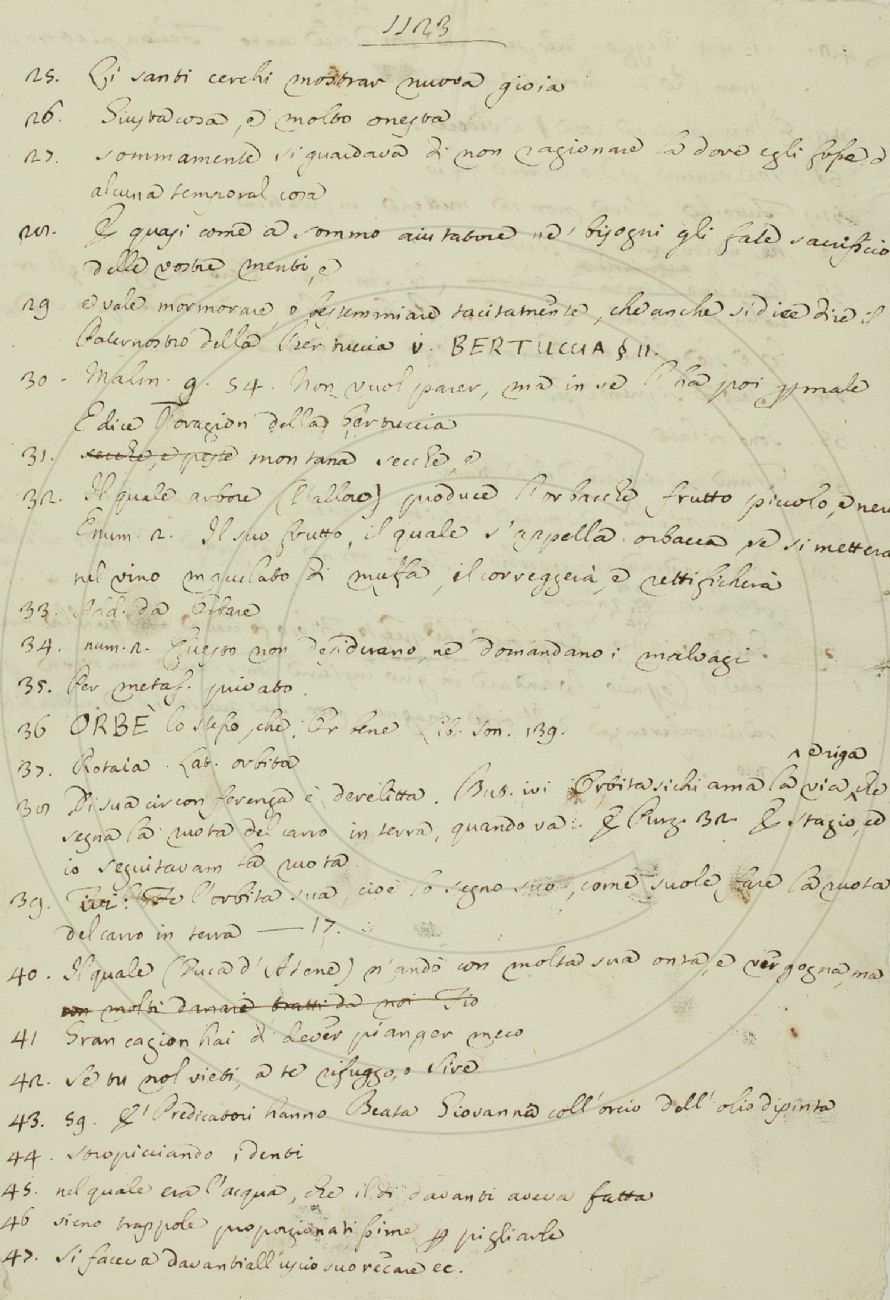 1123
25. Li santi cerchi mostrar nuova gioia
26. Giusta cosa, e molto onesta
27. sommamente si guardava di non ragionare la dove egli fosse d
alcuna temporal cosa
28. & quasi come a sommo aiutatore ne' bisogni gli fate sacrificio
delle vostre menti, e
29 e vale mormorare, o bestemmiare tacitamente, che anche si dice dire il
Paternostro della Bertuccia v. BERTUCCIA § II.
30. Malm. 9. 54. Non vuol parer, ma in se l'ha poi p male
E dice l'orazion della bertuccia
31. secche, e peste montana secche, e
32. Il quale arbore (l'alloro) produce l'orbacche frutto piccolo, e ner
E num. 2. Il suo frutto, il quale s'appella orbacca se si metterà
nel vino maculato di muffa, il correggerà, e rettificherà
33. Add. da Orbare
34. num. 2. Questo non desiderano, ne domandano i malvagi
35. Per metaf. privato.
36 ORBÈ lo stesso, che, Or bene Lib. Son. 139.
37. Rotaia. Lat. orbita
^ e riga
38 Di sua circonferenza è derelitta. But. ivi Orbita si chiama la via, che
segna la ruota del carro in terra, quando va. & Purg. 32 & Stazio, ed
io seguitavam la ruota
39. l'orbita sua, cioè lo segno suo, come suole fare la ruota
del carro in terra — 17.
40. Il quale (Duca d'Atene) n'andò con molta sua onta, e vergogna, ma
con molti danari tratti da noi
41 Gran cagion hai di dever pianger meco
42. Se tu nol vieti, a te rifuggo, o Sire
43. 59. & I Predicatori hanno Beata Giovanna coll'orcio dell'olio dipinta
44. stropicciando i denti
45. nel quale era l'acqua, che il dì davanti aveva fatta
46 sieno trappole proporzionatissime p pigliarle
47. si faceva davanti all'uscio suo recare ec.